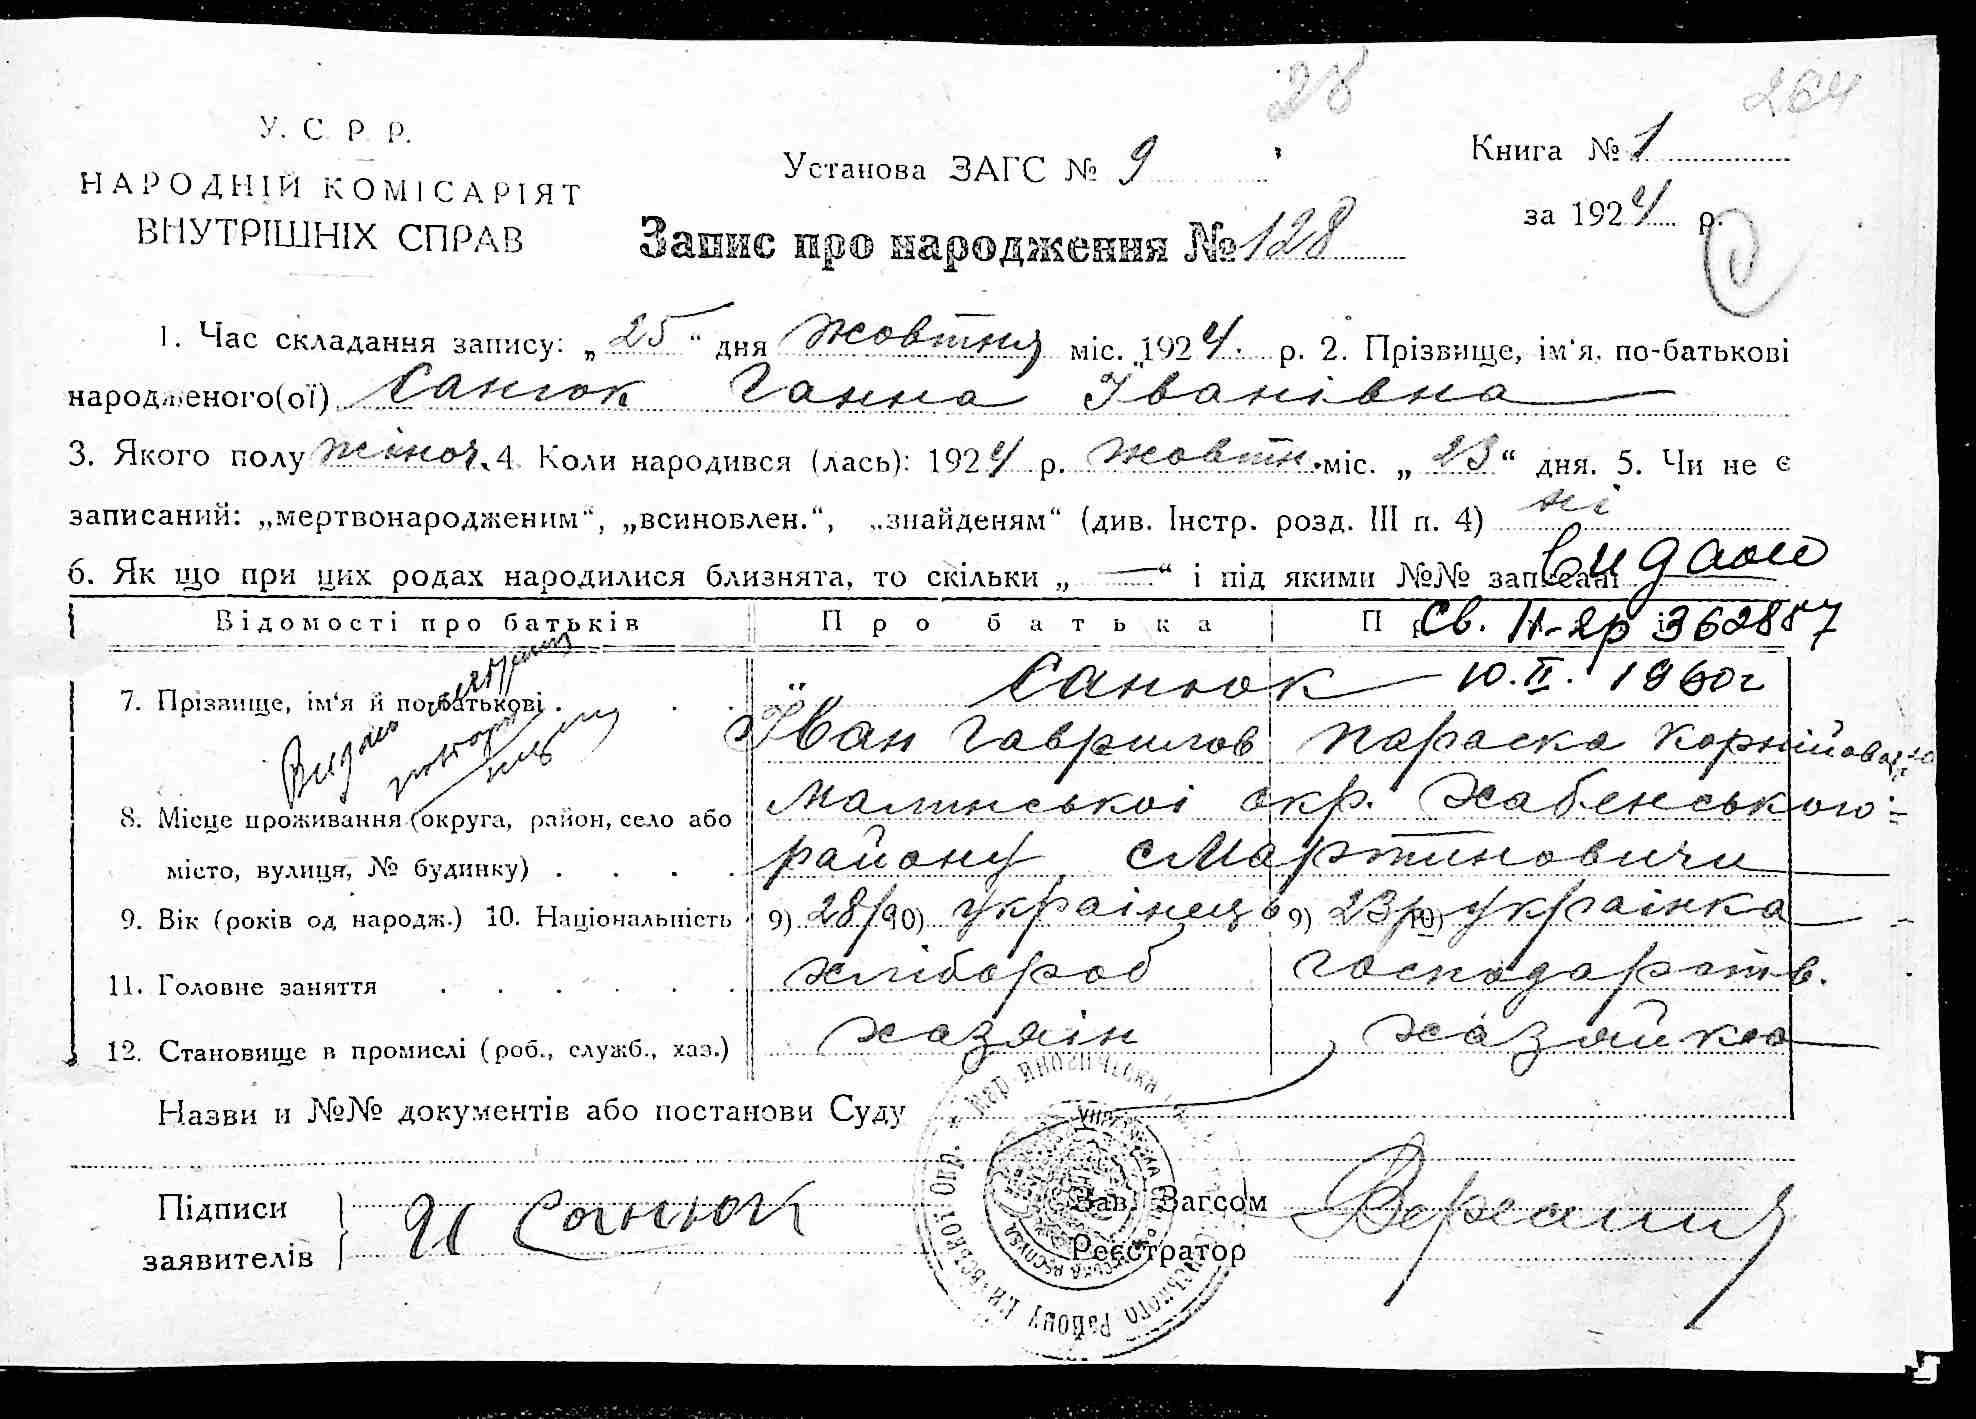 28
264
У. С. Р. Р.
НАРОДНІЙ КОМІСАРІЯТ
ВНУТРІШНІХ СПРАВ
Установа ЗАГС № 9
Книга № 1
за 1924 р.
Запис про народження № 128
1. Час складання запису: „25“ дня жовтня міс. 1924 р. 2. Прізвище, ім'я, по-батькові
народженого(ої) Санюк Ганна Іванівна
3. Якого полу жіноч. 4. Коли народився (лась): 1924 р. жовтн. міс. „23“ дня. 5. Чи не є
записаний: „мертвонародженим“, „всиновлен.“, „знайденям“ (див. Інстр. розд. III п. 4) ні
6. Як що при цих родах народилися близнята, то скільки „—“ і під якими №№ записані
Видано
Св. II-яр 362887
10.II. 1960г
Відомості про батьків Про батька
7. Прізвище, ім'я й по-батькові Санюк
Іван Гаврилов Параска Корнійова
Видано
повторн
8. Місце проживання (округа, район, село або
місто, вулиця, № будинку)
Малинськоі окр. Хабенського
району с Мартиновичи
9. Вік (років од народж.) 10. Національність 9) 28р 10) украінець 9) 23р 10) украінка
11. Головне заняття хлібороб господарств.
12. Становище в промислі (роб., служб., хаз.) хазяін хазяйка
Назви и №№ документів або постанови Суду
Підписи
заявителів
И Санюк
Зав. Загсом
Реєстратор